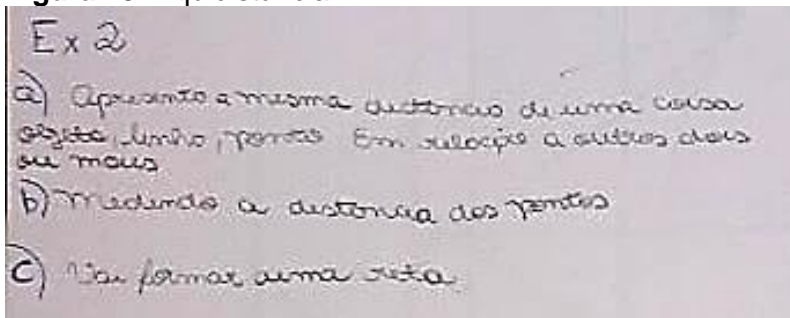 Ex 2
a) Apresenta a mesma distância de uma coisa
objeto, linha, ponto Em relação a outros dois
ou mais
b) Medindo a distancia dos pontos
c) Vai formar uma reta